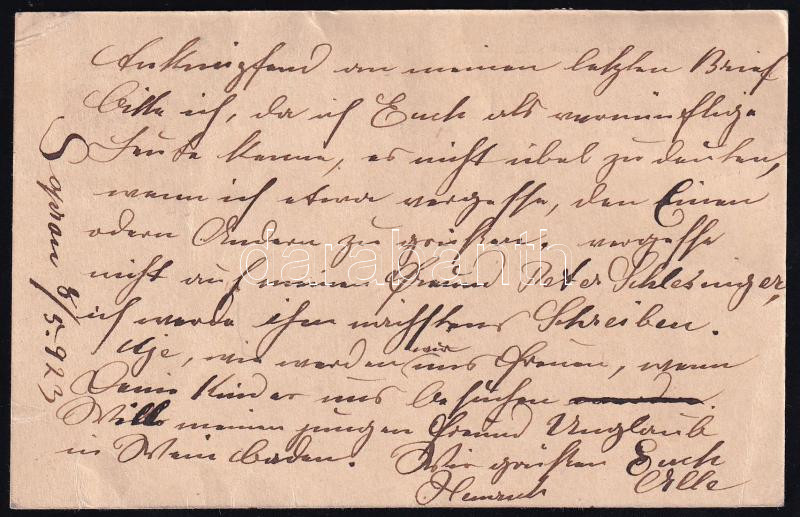 Anknüpfend an meinen letzten Brief
bitte ich, da ich Euch als vernünftige
Leute kenne, es nicht übel zu deuten,
wenn ich etwa vergesse, den Einen
odern Andern zu grüßen, vergesse
nicht auf meinen Freund Peter Schlesinger,
ich werde ihm nächstens Schreiben.
wie werden wir uns freuen, wenn
Deine Kinder uns besuchen
Will meinen jungen Freund Unglaub
in Wein baden. Wir grüßen Euch
Alle
Heinrich
Sopron 8/5. 923
darabanth